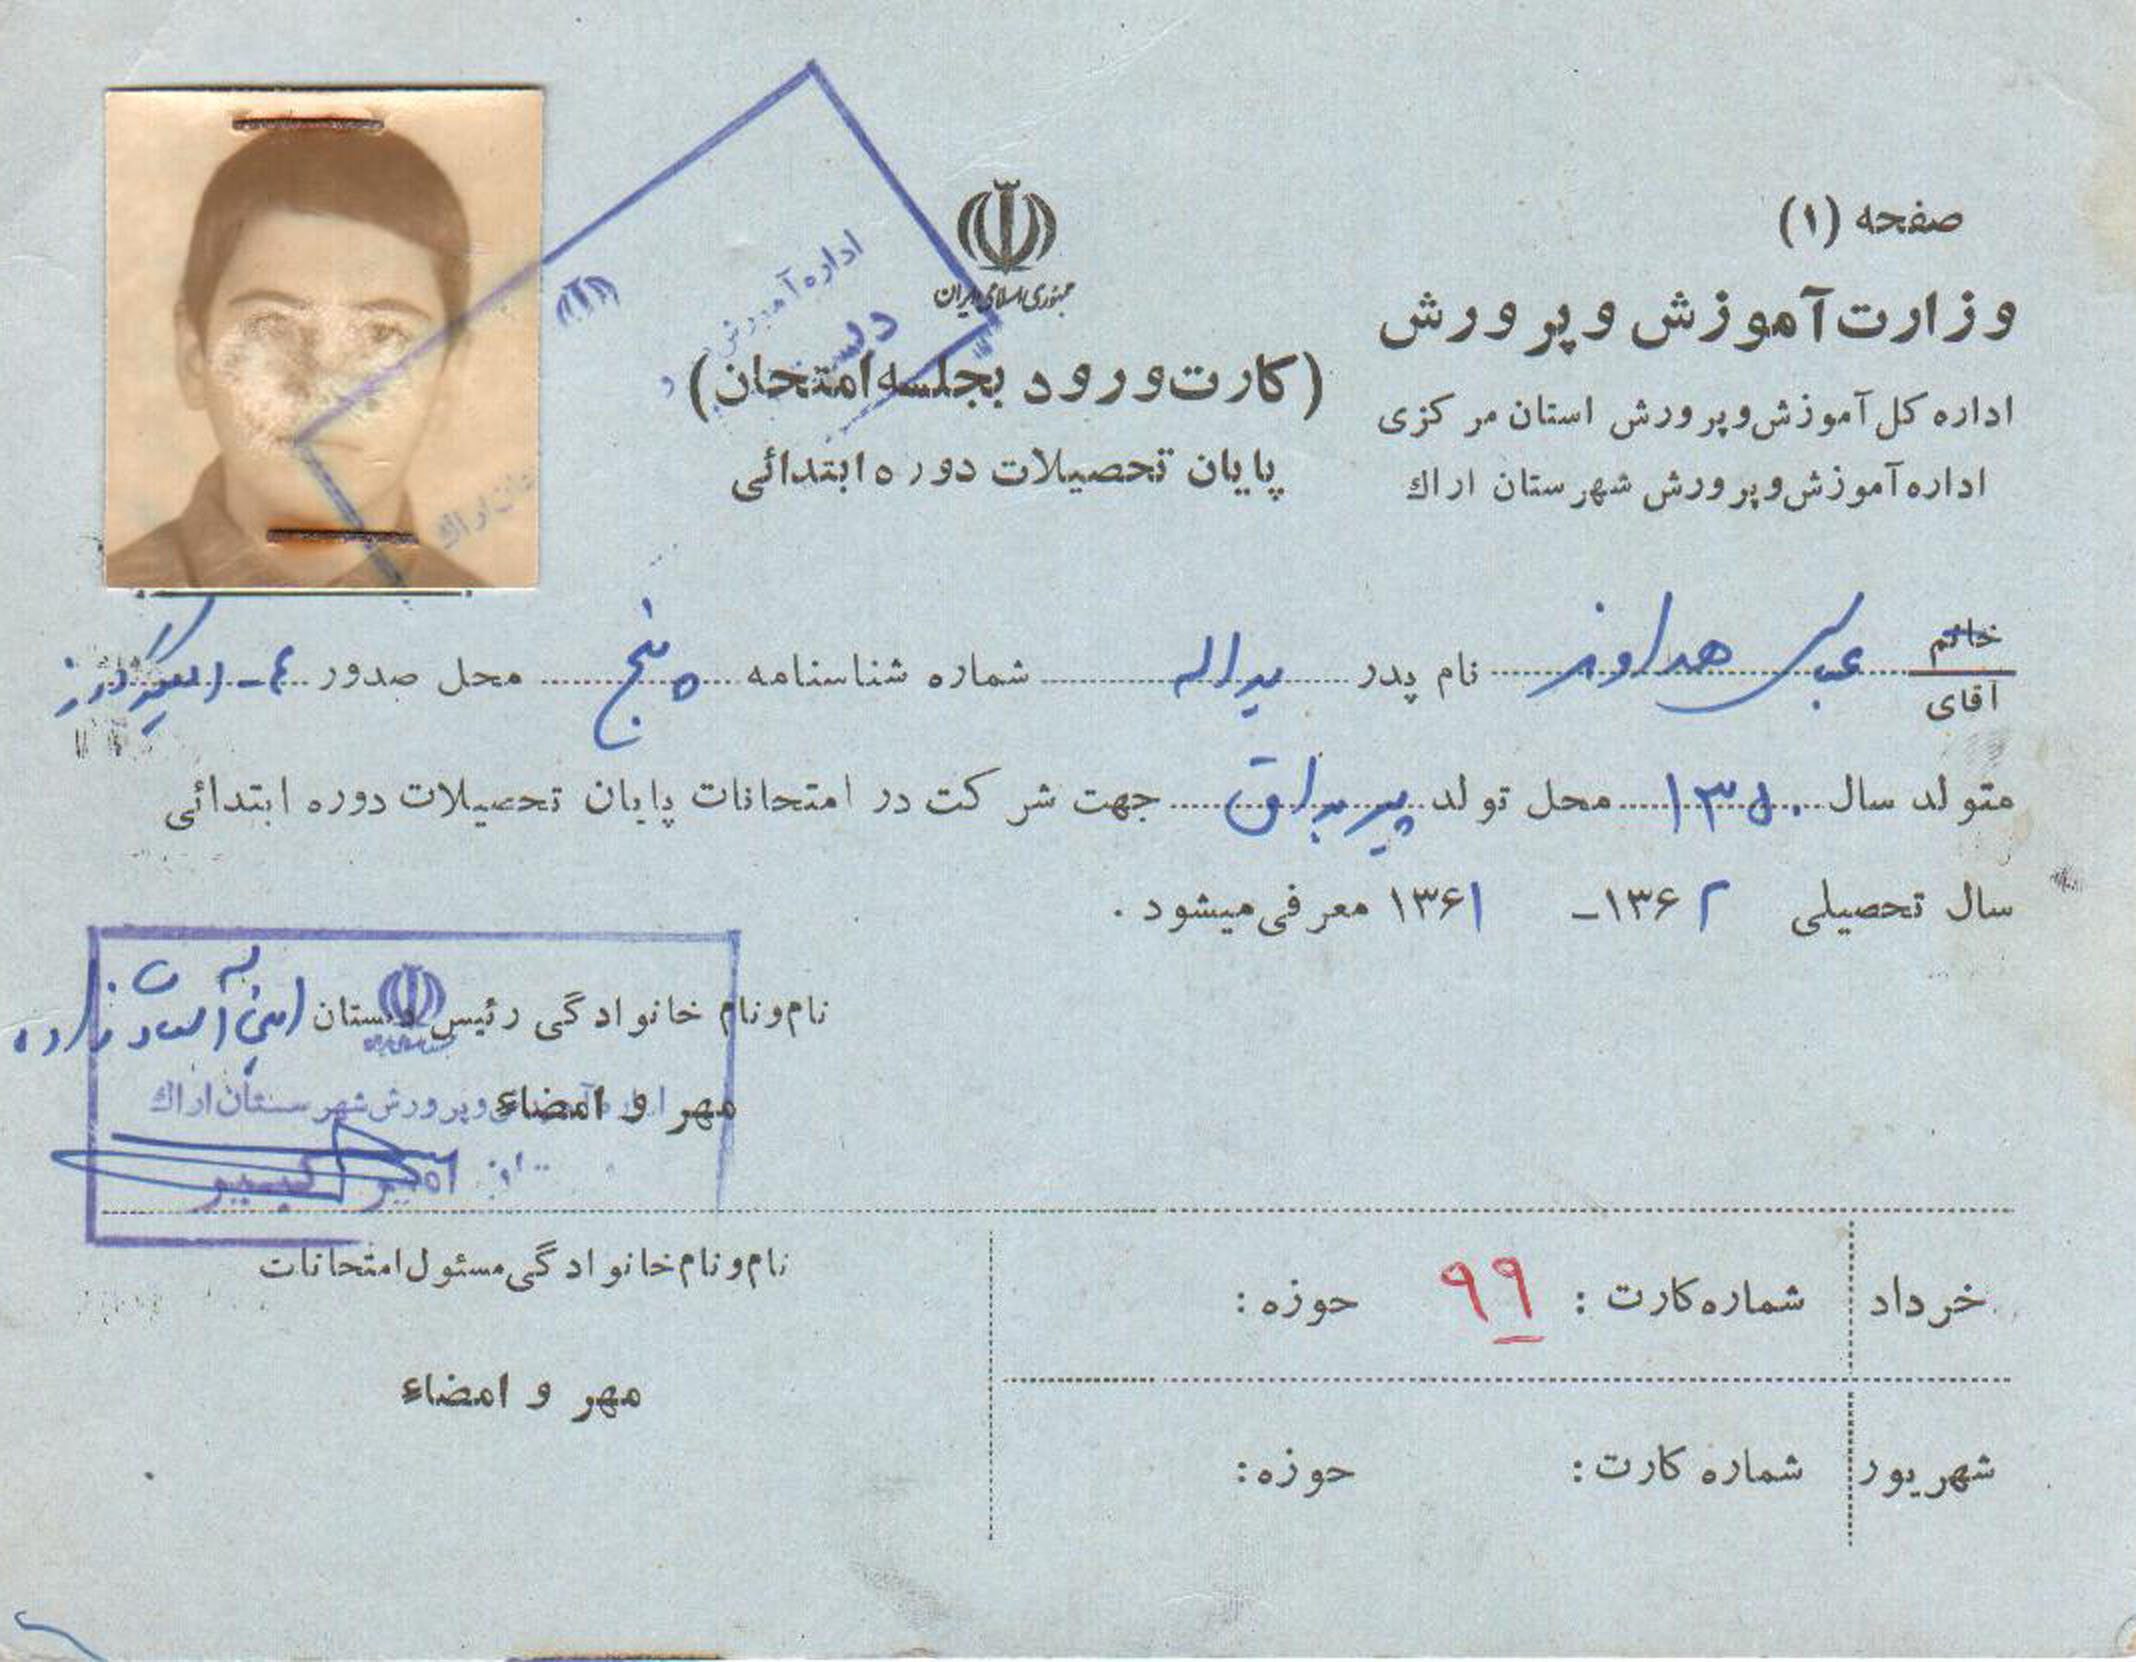 صفحه (۱)
وزارت آموزش و پرورش
اداره کل آموزش و پرورش استان مرکزی
اداره آموزش و پرورش شهرستان اراك
جمهوری اسلامی ایران
(کارت ورود بجلسه امتحان)
پایان تحصیلات دوره ابتدائی
اداره آموزش
خانم
آقای عباس هداوند نام پدر یداله شماره شناسنامه پنج ۵ محل صدور
متولد سال ۱۳۵۰ محل تولد پیربداق جهت شرکت در امتحانات پایان تحصیلات دوره ابتدائی
سال تحصیلی ۱۳۶۲ - ۱۳۶۱ معرفی میشود .
نام و نام خانوادگی رئیس دبستان
مهر و امضاء
و پرورش شهرستان اراك
امیر کبیر
خرداد شماره کارت : ۹۹ حوزه :
شهریور شماره کارت : حوزه :
نام و نام خانوادگی مسئول امتحانات
مهر و امضاء